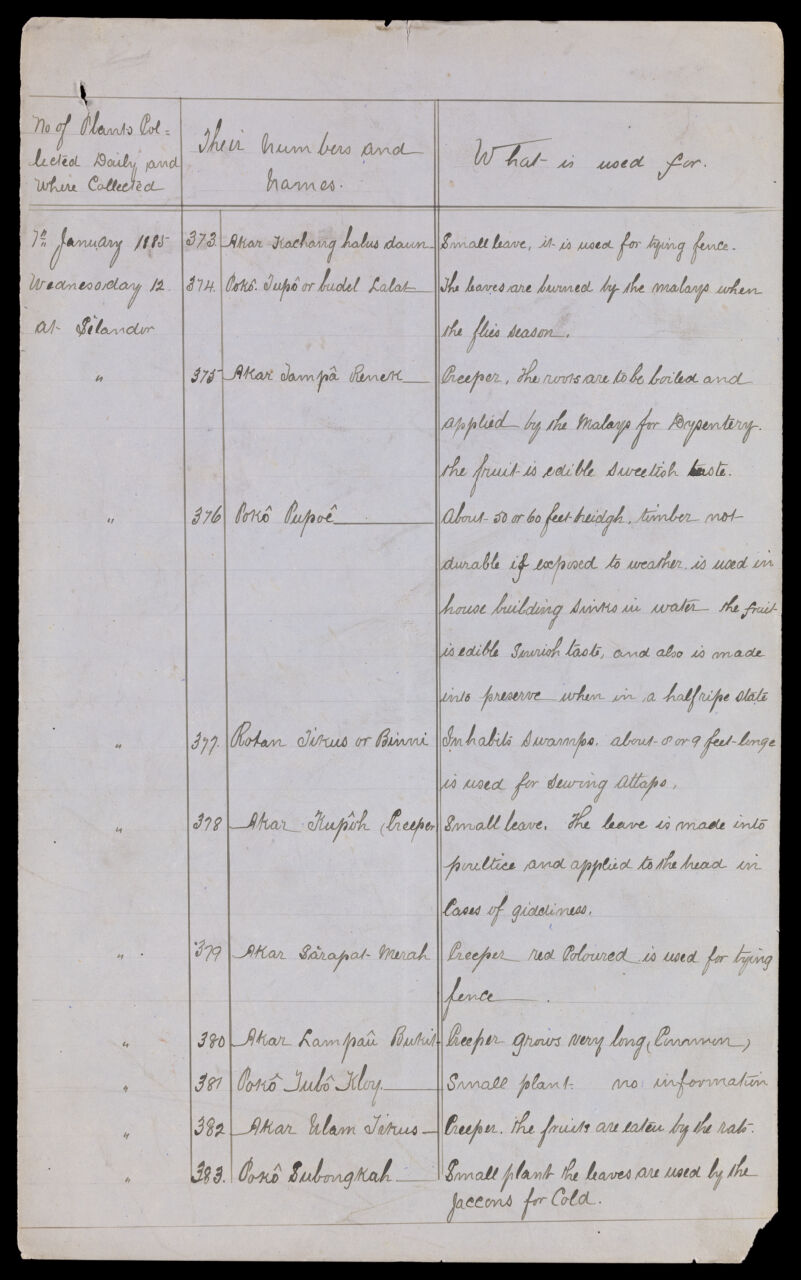 No of Plants Col=
lected Daily and
Where Collected
Their Numbers and
Names.
What is used for.
7th January 1885
373. Akar Kachang halus daun
Small leave, it is used for tying fence.
Wednesday 12
374. Pokô. Tupô or budel Lalat
The leaves are burned by the malays when
at Silandor
the flies season.
" 375 Akar Tampâ Renek
Creeper, the roots are to be boiled and
applied by the Malays for Dysentery.
the fruit is edible sweetish taste.
" 376 Pokô Pupoê
About 50 or 60 feet heidgh, timber not
durable if exposed to weather, is used in
house building sinks in water the fruit
is edible sourish taste, and also is made
into preserve when in a half ripe state
" 377. Rotan Tikus or Binni
Inhabits swamps. about 8 or 9 feet longe
is used for sewing attaps.
" 378 Akar Kupôh (Creeper
Small leave. The leave is made into
poultice and applied to the head in
Cases of giddiness.
" 379 Akar Sarapat Merah
Creeper red Coloured is used for tying
fence.
" 380 Akar Lampaû Bukit
Creeper grows very long, (Common)
" 381 Pokô Tubô Kloy.
Small plant no information
" 382 Akar Ulam Tikus
Creeper. the fruits are eaten by the rats.
" 383. Pokô Subongkah
Small plant the leaves are used by the
Jaccons for Cold.